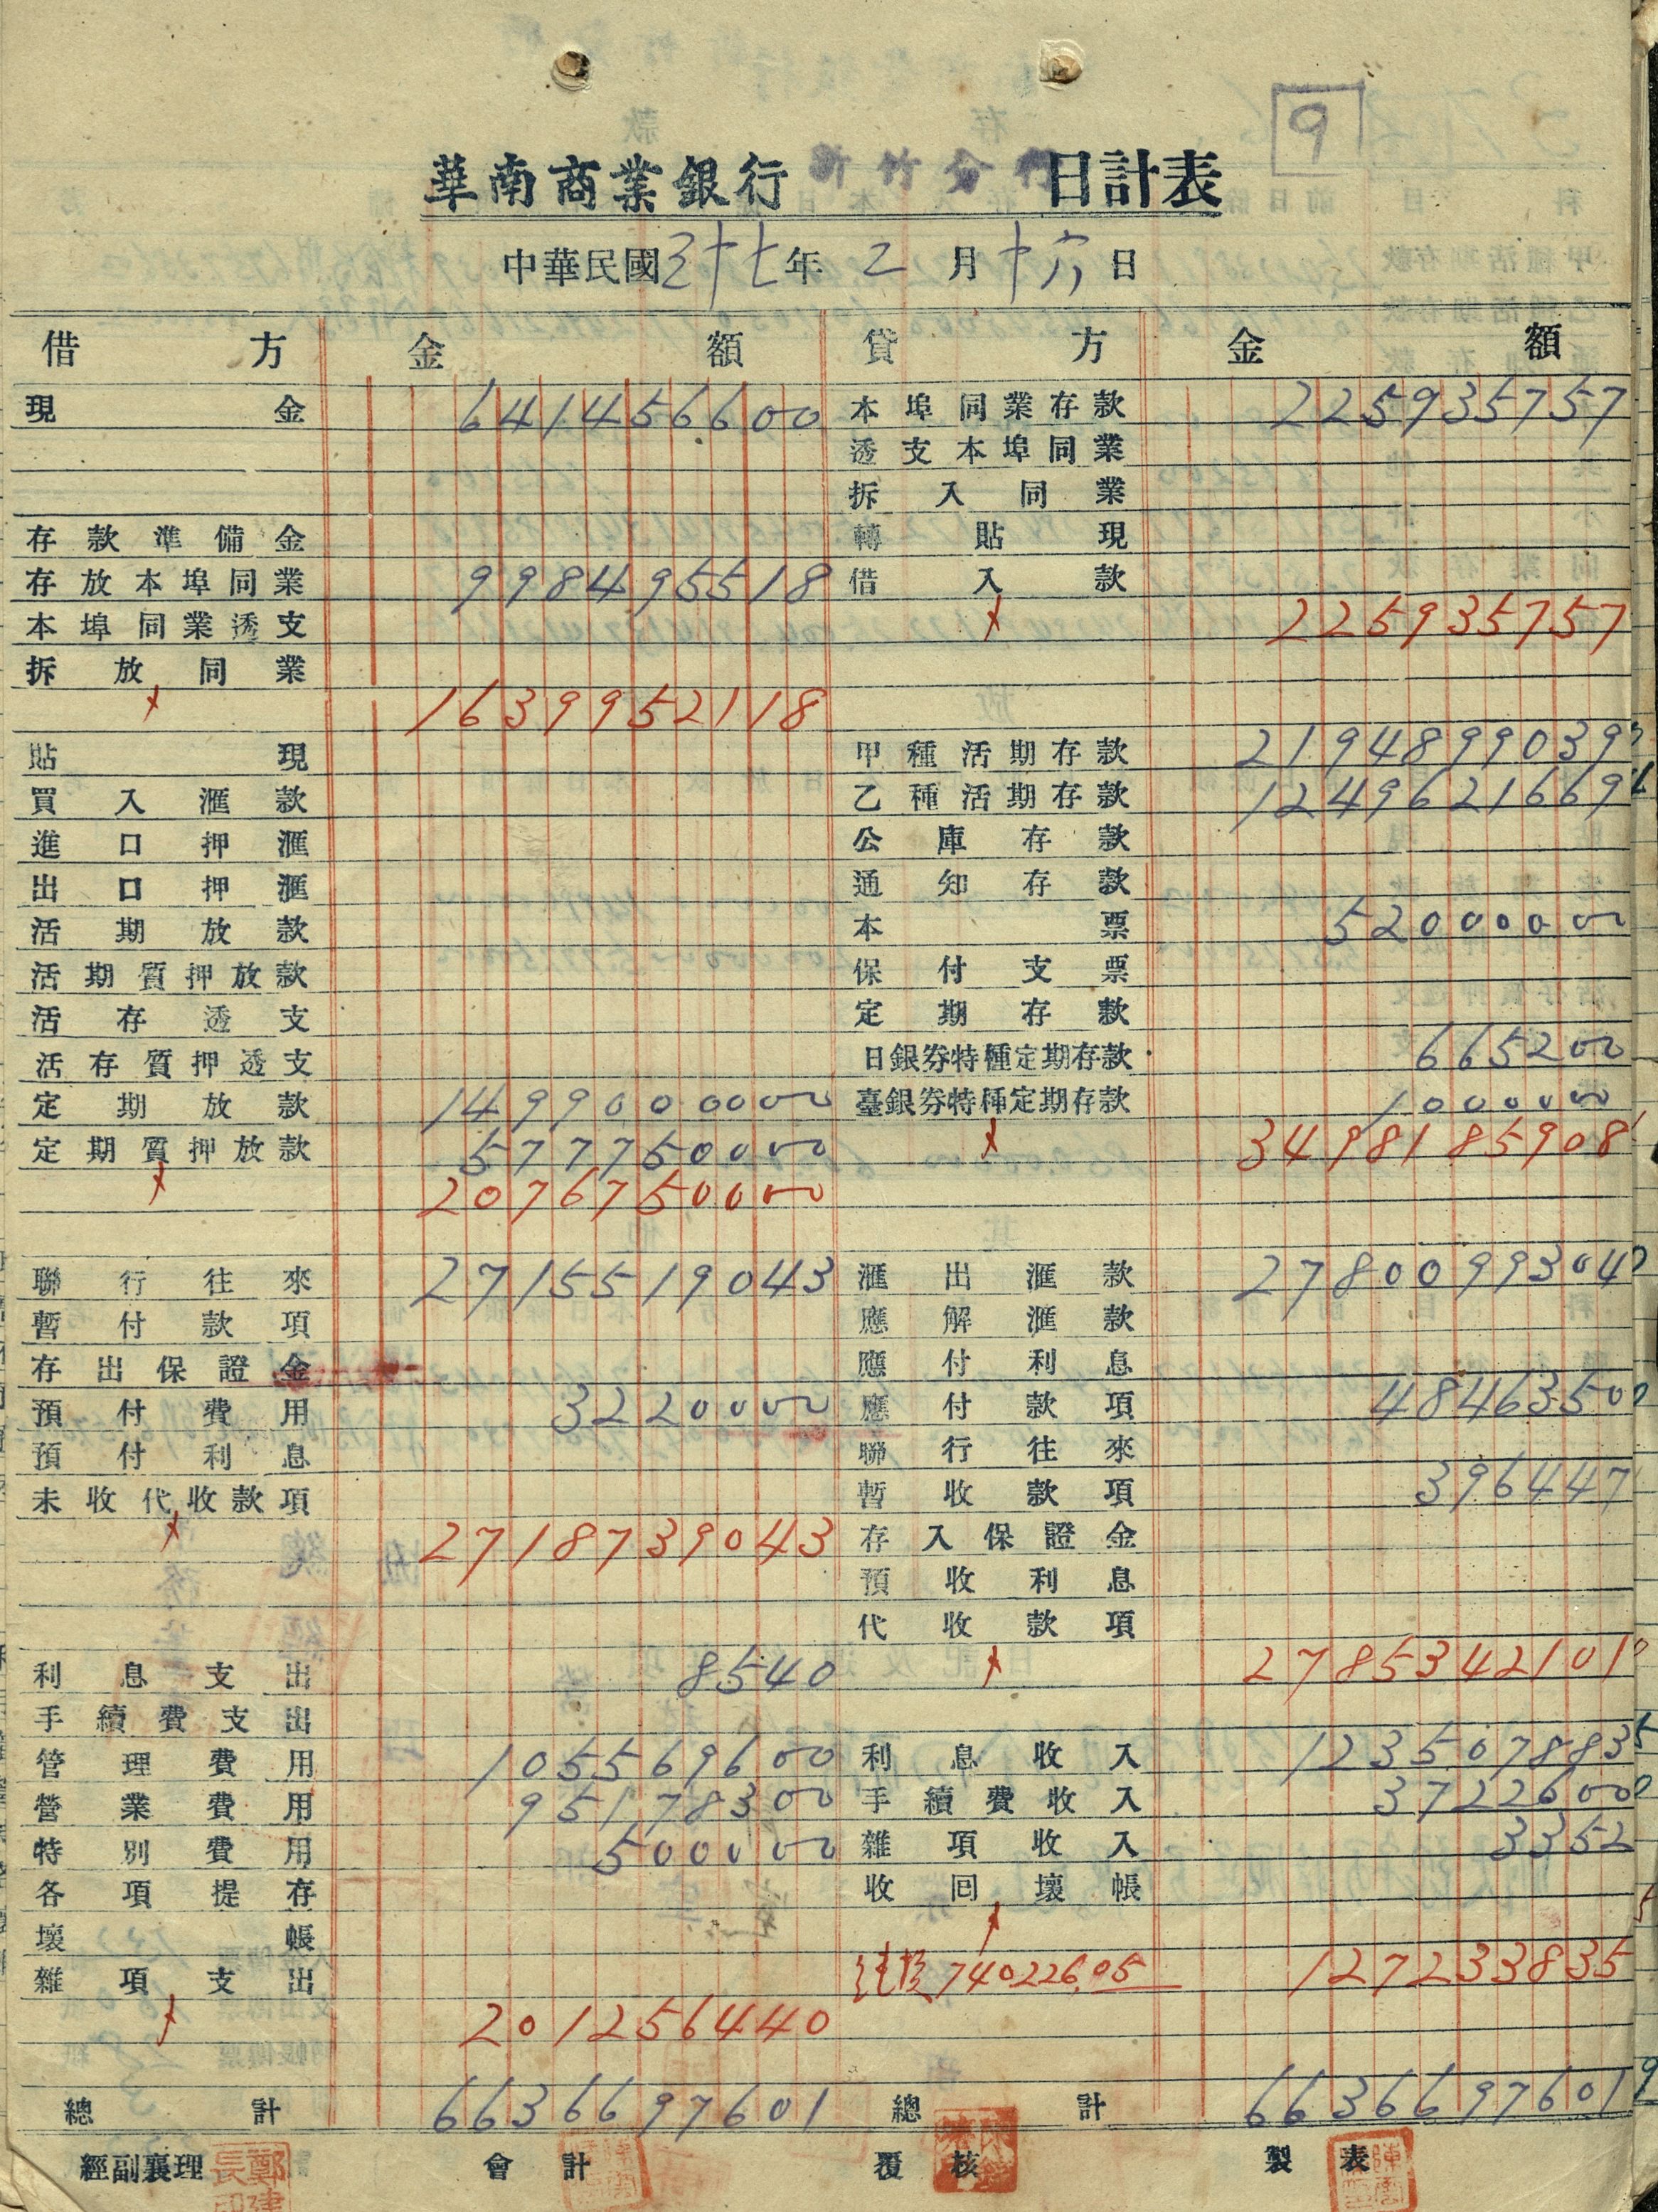 9
華南商業銀行 新竹分行 日計表
中華民國三十七年 二 月十六日
借方 金額 貸方 金額
現金 641456600 本埠同業存款 225935757
透支本埠同業
拆入同業
存款準備金 轉貼現
存放本埠同業 998495518 借入款
本埠同業透支 225935757
拆放同業
1639952118
貼現 甲種活期存款 2194899039
買入滙款 乙種活期存款 1249621669
進口押滙 公庫存款
出口押滙 通知存款
活期放款 本票 52000000
活期質押放款 保付支票
活存透支 定期存款
活存質押透支 日銀券特種定期存款 665200
定期放款 1499000000 臺銀券特種定期存款 1000000
定期質押放款 577750000 3498185908
2076750000
聯行往來 2715519043 滙出滙款 2780099304
暫付款項 應解滙款
存出保證金 應付利息
預付費用 3220000 應付款項 4846350
預付利息 聯行往來
未收代收款項 暫收款項 396447
2718739043 存入保證金
預收利息
代收款項
利息支出 8540 2785342101
手續費支出
管理費用 105569600 利息收入 123507883
營業費用 95178300 手續費收入 3722600
特別費用 500000 雜項收入 3352
各項提存 收回壞帳
壞帳
雜項支出 純損 740226.05 127233835
201256440
總計 6636697601 總計 6636697601
經副襄理 會計 覆核 製表